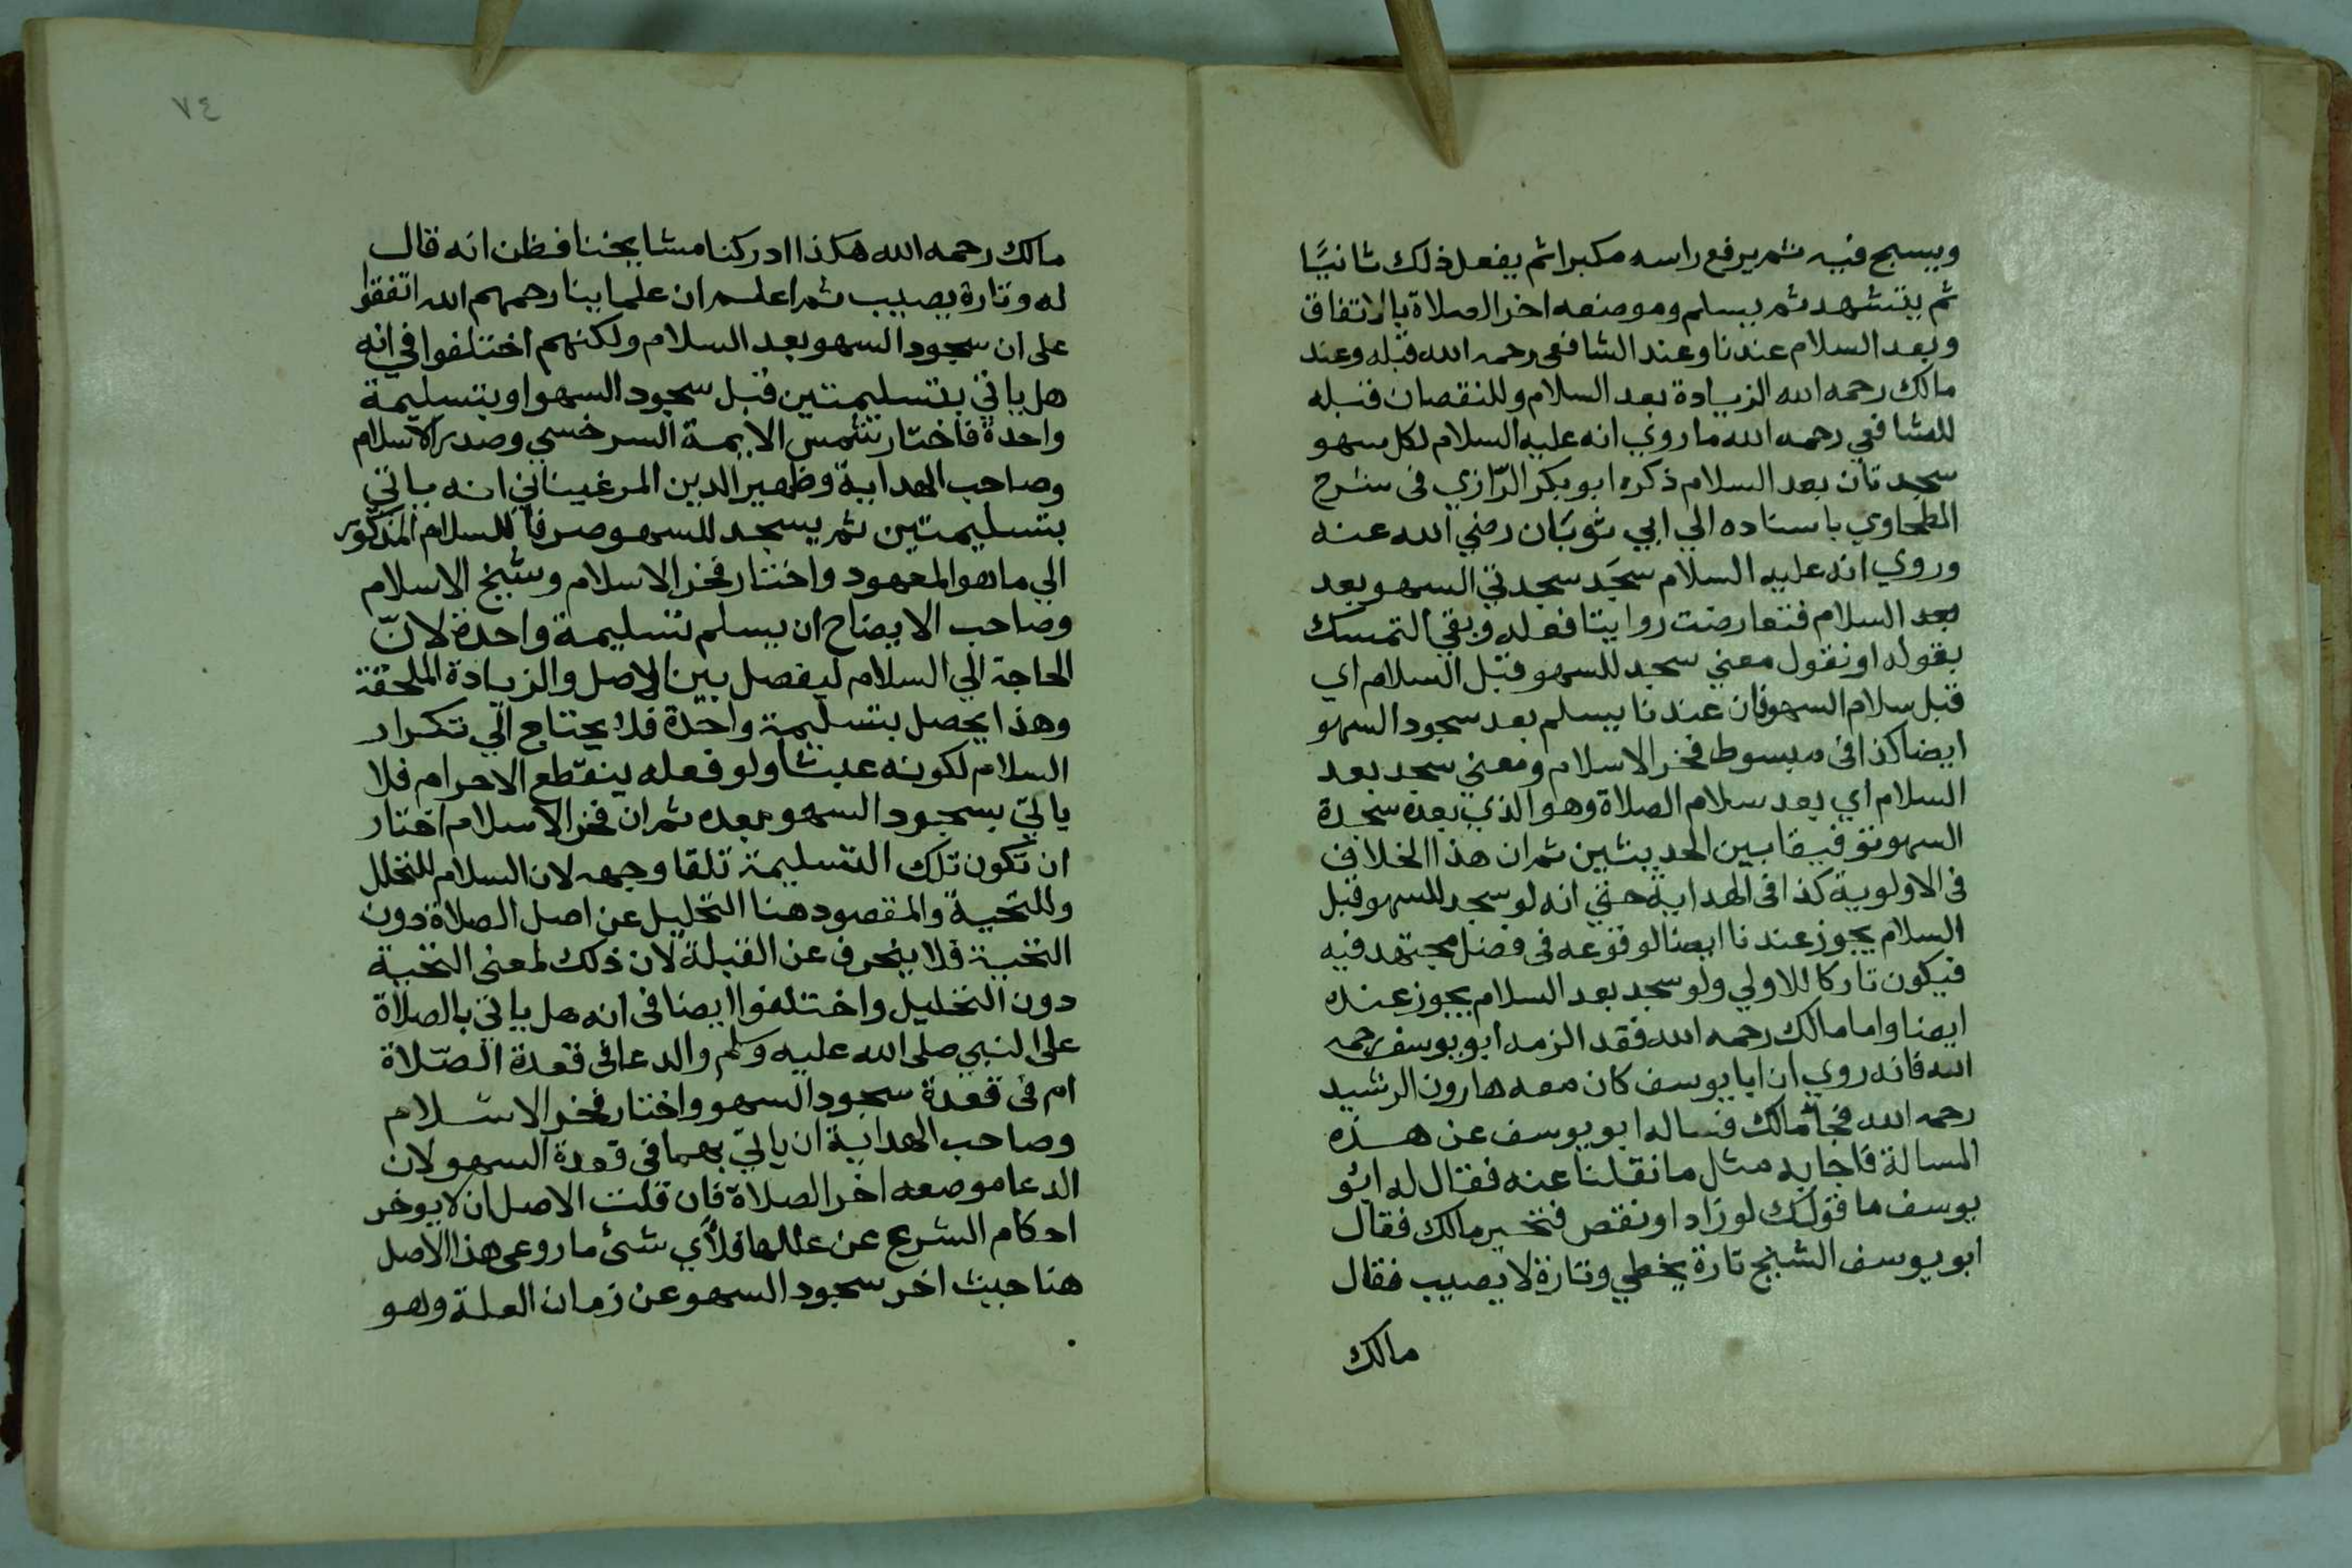 ويسبح فيه ثم يرفع راسه مكبرا ثم يفعل ذلك ثانيًا
ثم يتشهد ثم يسلم وموضعه اخر الصلاة بالاتفاق
وبعد السلام عندنا وعند الشافعي رحمه الله قبله وعند
مالك رحمه الله الزيادة بعد السلام وللنقصان قبله
للشافعي رحمه الله ما روي انه عليه السلام لكل سهو
سجدتان بعد السلام ذكره ابو بكر الرّازي فى شرح
الطحاوي باسناده الي ابي ثوبَان رضي الله عنه
وروي انه عليه السلام سجَد سجدتي السهو بعد
بعد السلام فتعارضت روايتا فعله وبقي التمسك
بقوله او نقول معني سجد للسهو قبل السلام اي
قبل سلام السهو فان عندنا يسلم بعد سجود السهو
ايضا كذا فى مبسوط فخر الاسلام ومعني سجد بعد
السلام اي بعد سلام الصلاة وهو الذي بعده سجدة
السهو توفيقا بين الحديثين ثم ان هذا الخلاف
فى الاولوية كذا فى الهداية حتي انه لو سجد للسهو قبل
السلام يجوز عندنا ايضا لوقوعه فى فصل مجتهد فيه
فيكون تاركا للاولي ولو سجد بعد السلام يجوز عنده
ايضا واما مالك رحمه الله فقد الزمه ابو يوسف رحمه
الله فانه روي ان ابا يوسف كان معه هارون الرشيد
رحمه الله فجا مالك فساله ابو يوسف عن هذه
المسالة فاجابه مثل ما نقلنا عنه فقال له ابو
يوسف ما قولك لو زاد او نقص فتحير مالك فقال
ابو يوسف الشيخ تارة يخطي وتارة لا يصيب فقال
مالك
٧٤
مالك رحمه الله هكذا ادركنا مشايخنا فظن انه قال
له وتارة يصيب ثم اعلم ان علماينا رحمهم الله اتفقوا
على ان سجود السهو بعد السلام ولكنهم اختلفوا في انه
هل ياتي بتسليمتين قبل سجود السهو او بتسليمة
واحدة فاختار شمس الايمة السرخسي وصدر الاسلام
وصاحب الهداية وظهير الدين المرغيناني انه ياتي
بتسليمتين ثم يسجد للسهو صرفا للسلام المذكور
الي ما هو المعهود واختار فخر الاسلام وشيخ الاسلام
وصاحب الايضاح ان يسلم تسليمة واحدة لانّ
الحاجة الي السلام ليفصل بين الاصل والزيادة الملحقة
وهذا يحصل بتسليمة واحدة فلا يحتاج الي تكرار
السلام لكونه عبثا ولو فعله ينقطع الاحرام فلا
ياتي بسجود السهو بعده ثم ان فخر الاسلام اختار
ان تكون تلك التسليمة تلقا وجهه لان السلام للتحلل
وللتحية والمقصود هنا التحليل عن اصل الصلاة دون
التحية فلا ينحرف عن القبلة لان ذلك لمعنى التحية
دون التحليل واختلفوا ايضا فى انه هل ياتي بالصلاة
على النبي صلى الله عليه وسلم والدعا فى قعدة الصّلاة
ام فى قعدة سجود السهو واختار فخر الاسلام
وصاحب الهداية ان ياتي بهما فى قعدة السهو لان
الدعا موضعه اخر الصلاة فان قلت الاصل ان لا يوخر
احكام الشرع عن عللها فلأي شئ ما روعي هذا الاصل
هنا حيث اخر سجود السهو عن زمان العلة وهو